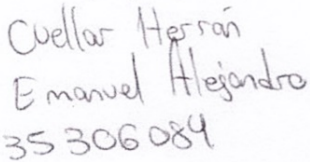 Cuellar Herrán
Emanuel Alejandro
35306084